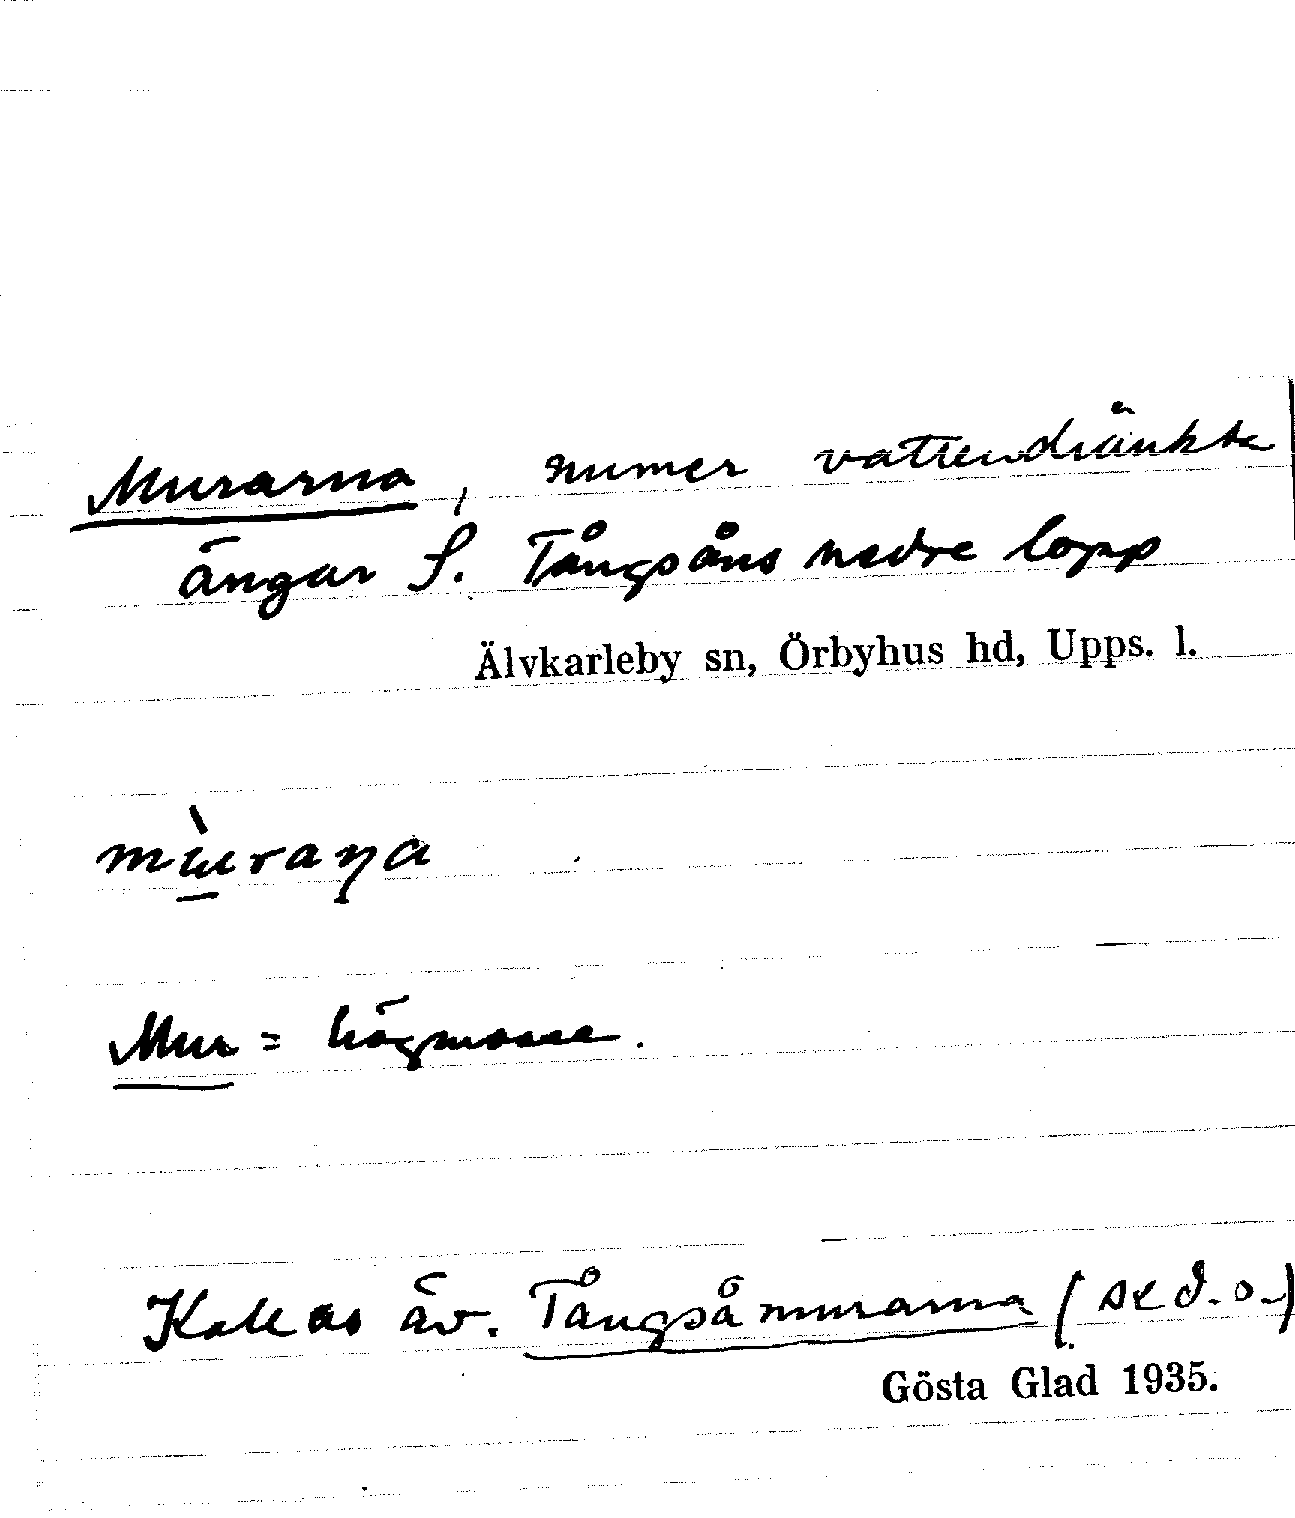 Murarna, numer vattendränkta
ängar S. Tångsåns nedre lopp
Älvkarleby sn, Örbyhus hd, Upps. l.
mù̠raṇa
Mur = högmosse.
Kallas äv. Tångsåmurarna (se d. o.)
Gösta Glad 1935.